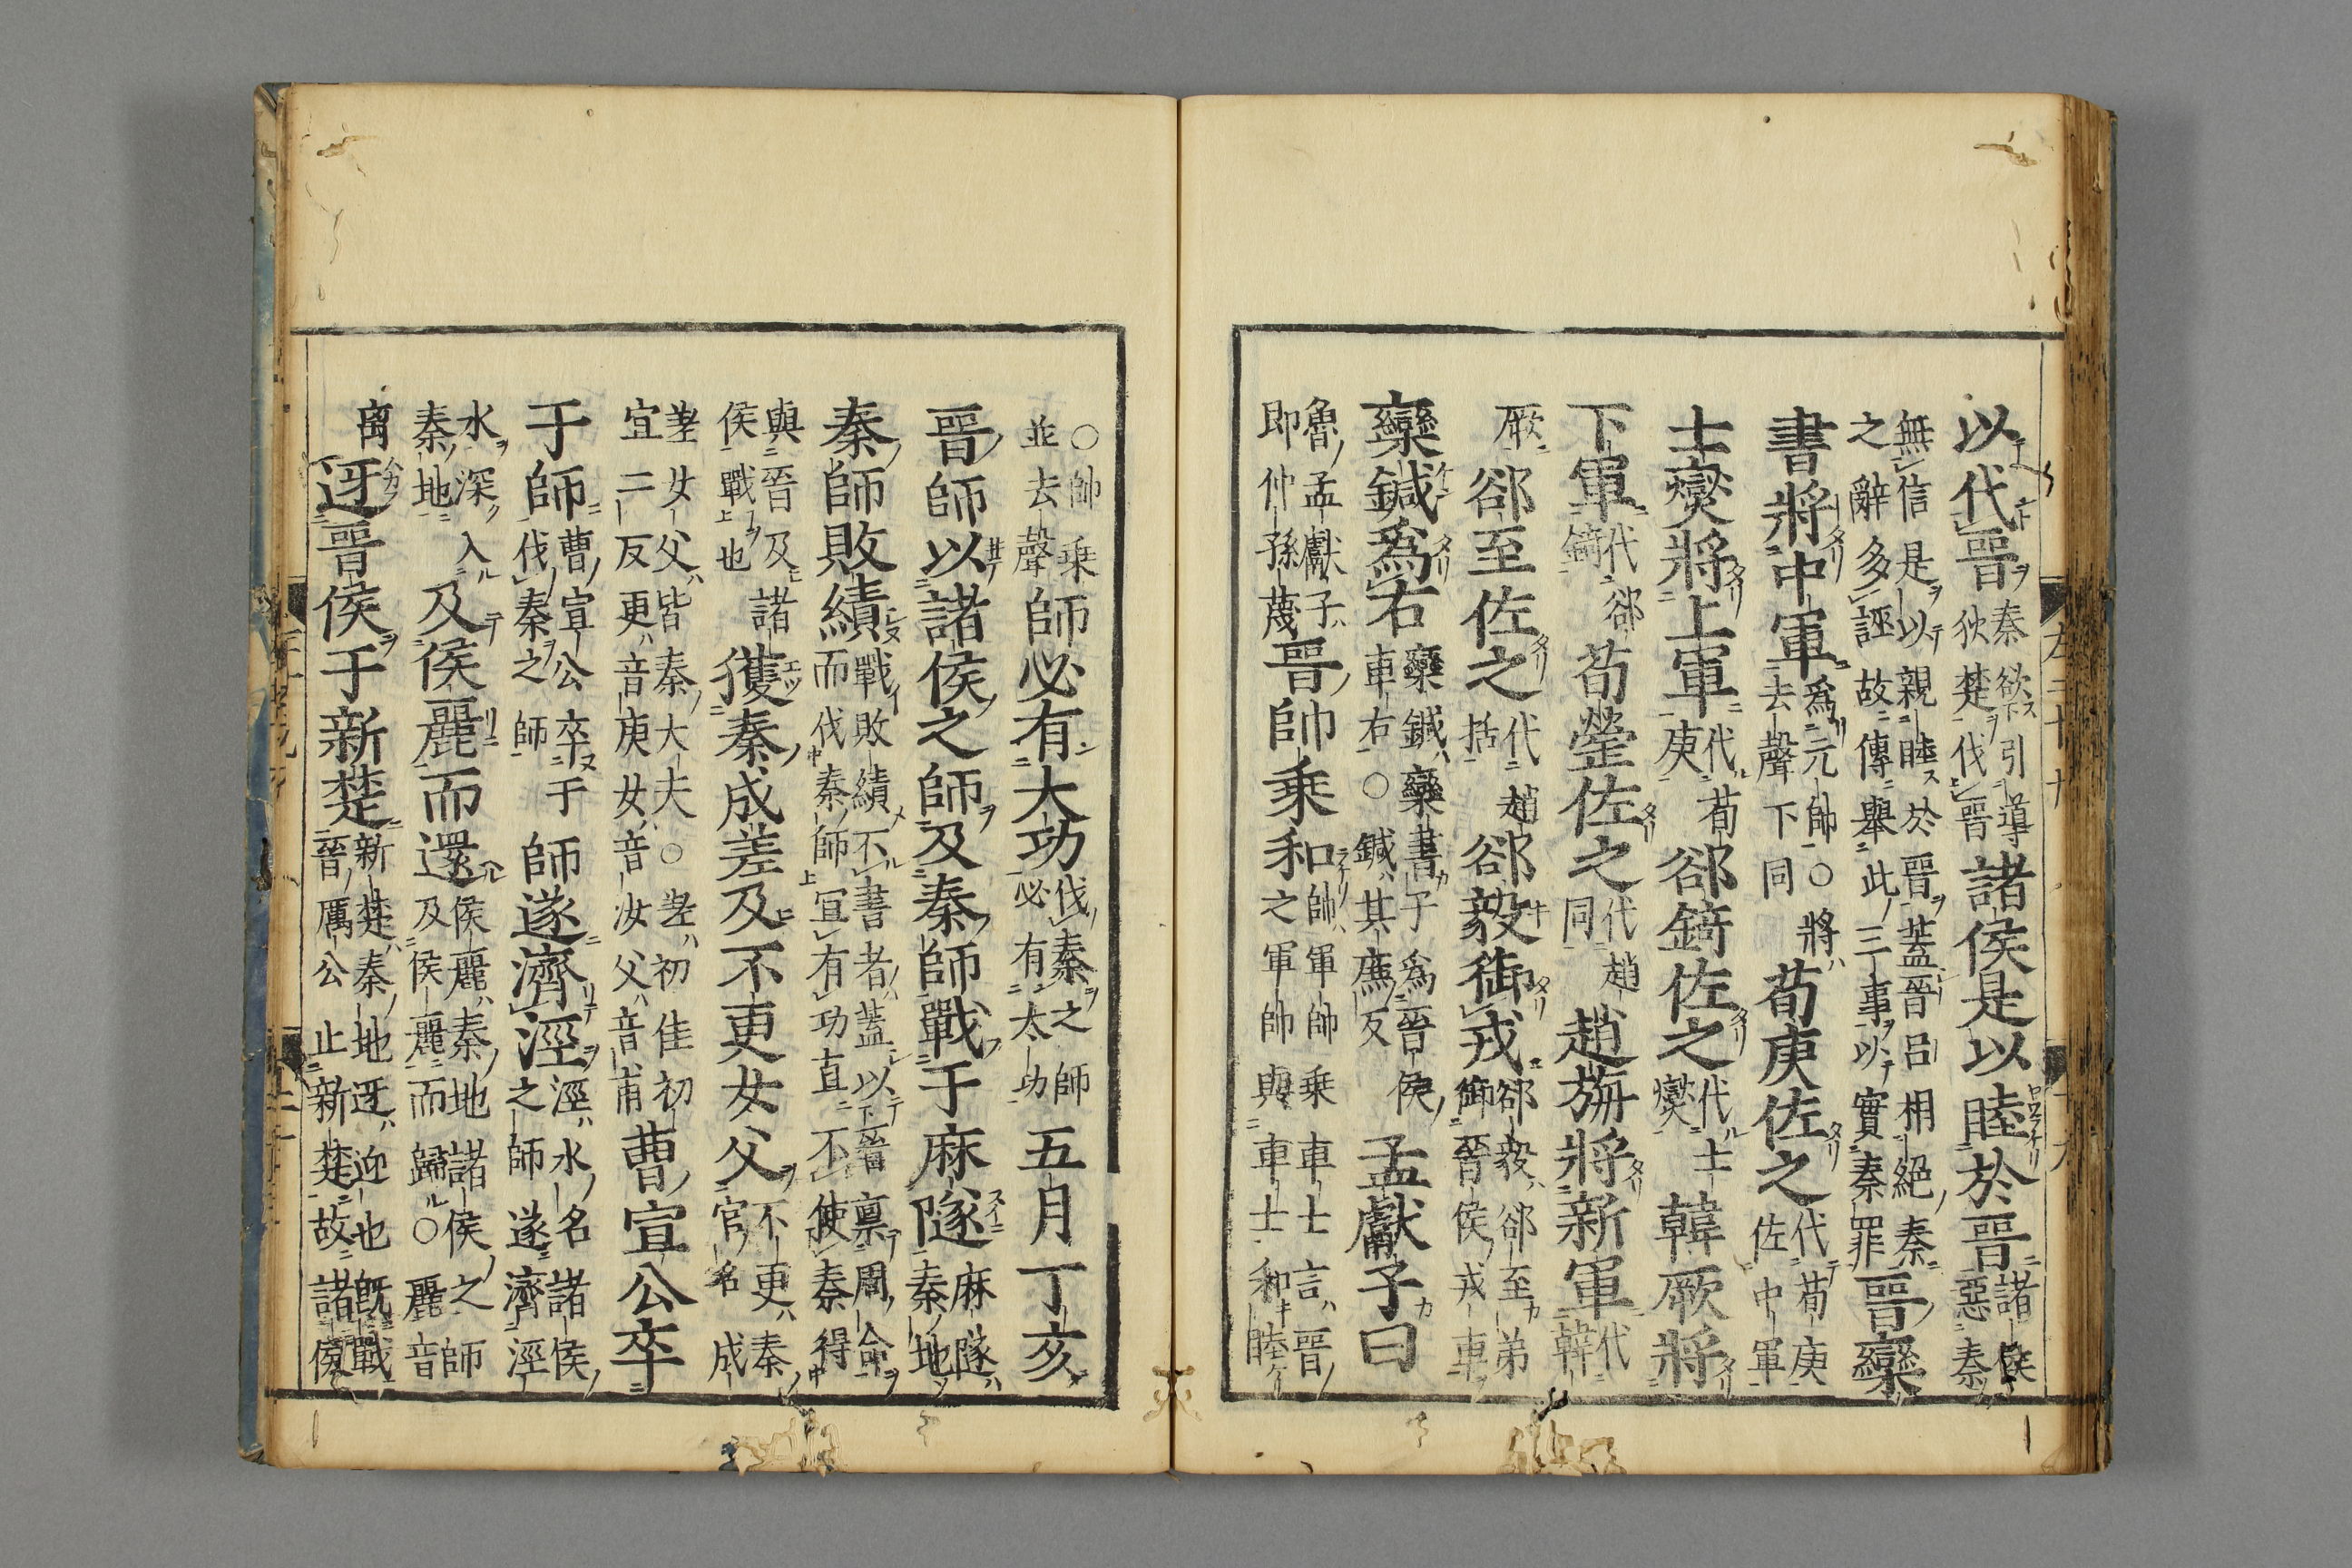 以代晉秦欲引導狄楚伐晉諸侯是以睦於晉諸侯惡秦
無信是以親睦於晉蓋晉呂相絕秦之辭多誣故傳舉此三事以實秦罪晉欒
書將中軍爲元帥○將去聲下同荀庚佐之代荀庚佐中軍
士燮將上軍代荀庚郤錡佐之代士燮韓厥將
下軍代郤錡荀罃佐之代趙同趙旃將新軍代韓
厥郤至佐之代趙括郤毅御戎郤毅郤至弟御晉侯戎車
欒鍼爲右欒鍼欒書子爲晉侯車右○鍼其廉反孟獻子曰
魯孟獻子即仲孫蔑晉帥乘和帥軍帥乘車士言晉之軍帥與車士和睦
○帥乘並去聲師必有大功伐秦之師必有大功五月丁亥
晉師以諸侯之師及秦師戰于麻隧麻隧秦地
秦師敗績戰敗績不書者蓋以晉稟周命而伐秦師宜有功直不使秦得
與晉及諸侯戰也獲秦成差及不更女父不更秦官名成
差女父皆秦大夫○差初佳初宜二反更音庚女音汝父音甫曹宣公卒
于師曹宣公卒于伐秦之師師遂濟涇涇水名諸侯之師遂濟涇
水深入秦地及侯麗而還侯麗秦地諸侯之師及侯麗而歸○麗音
离迓晉侯于新楚新楚秦地迓迎也既戰晉厲公止新楚故諸侯